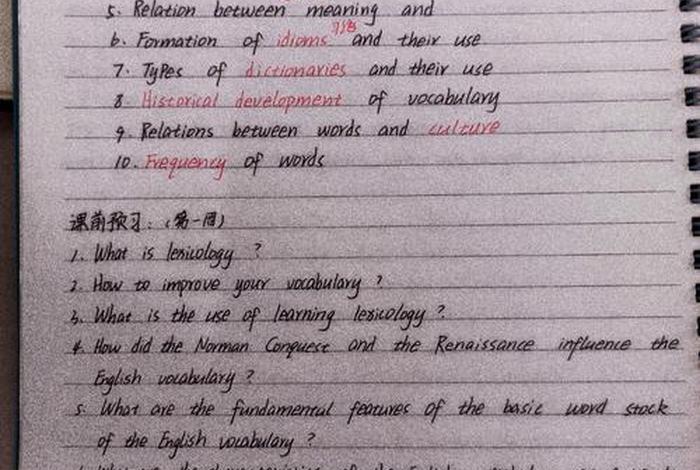 5. Relation between meaning and
习语
6. Formation of idioms and their use
7. Types of dictionaries and their use
8. Historical development of vocabulary
9. Relations between words and culture
10. Frequency of words
课前预习：（第一周）
1. What is lexicology ?
2. How to improve your vocabulary ?
3. What is the use of learning lexicology ?
4. How did the Norman Conquest and the Renaissance influence the
English vocabulary ?
5. What are the fundamental features of the basic word stock
of the English vocabulary ?